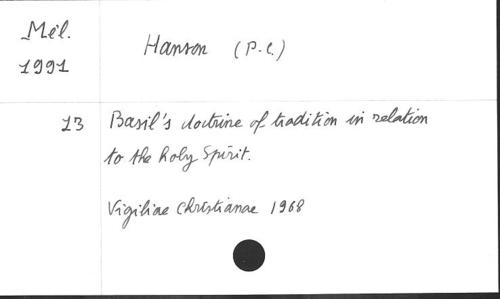 Mél.
1991
Hanson (P.C.)
13 Basil's doctrine of tradition in relation
to the holy Spirit.
Vigiliae Christianae 1968